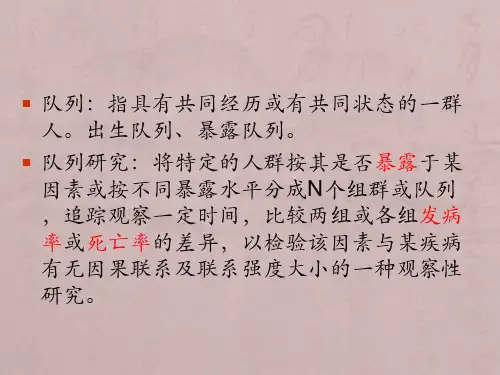 队列：指具有共同经历或有共同状态的一群
人。出生队列、暴露队列。
队列研究：将特定的人群按其是否暴露于某
因素或按不同暴露水平分成N个组群或队列
，追踪观察一定时间，比较两组或各组发病
率或死亡率的差异，以检验该因素与某疾病
有无因果联系及联系强度大小的一种观察性
研究。